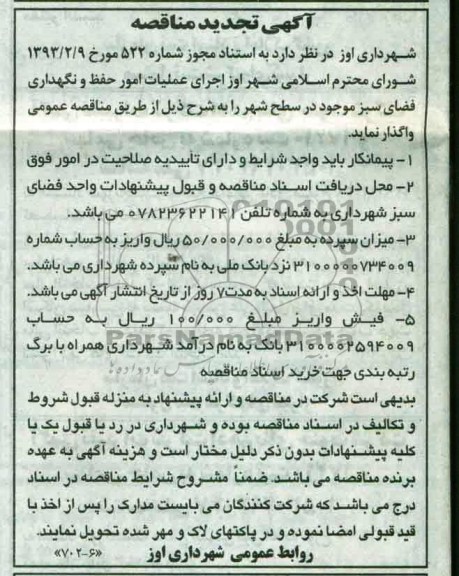 آگهی تجدید مناقصه
شهرداری اوز در نظر دارد به استناد مجوز شماره ۵۲۲ مورخ ۱۳۹۳/۲/۹
شورای محترم اسلامی شهر اوز اجرای عملیات امور حفظ و نگهداری
فضای سبز موجود در سطح شهر را به شرح ذیل از طریق مناقصه عمومی
واگذار نماید.
۱- پیمانکار باید واجد شرایط و دارای تأییدیه صلاحیت در امور فوق
۲- محل دریافت اسناد مناقصه و قبول پیشنهادات واحد فضای
سبز شهرداری به شماره تلفن ۰۷۸۲۳۶۲۲۱۴۱ می باشد.
۳- میزان سپرده به مبلغ ۵۰/۰۰۰/۰۰۰ ریال واریز به حساب شماره
۳۱۰۰۰۰۰۷۳۴۰۰۹ نزد بانک ملی به نام سپرده شهرداری می باشد.
۴- مهلت اخذ و ارائه اسناد به مدت ۷ روز از تاریخ انتشار آگهی می باشد.
۵- فیش واریز مبلغ ۱۰۰/۰۰۰ ریال به حساب
۳۱۰۰۰۰۲۵۹۴۰۰۹ بانک به نام درآمد شهرداری همراه با برگ
رتبه بندی جهت خرید اسناد مناقصه
بدیهی است شرکت در مناقصه و ارائه پیشنهاد به منزله قبول شروط
و تکالیف در اسناد مناقصه بوده و شهرداری در رد یا قبول یک یا
کلیه پیشنهادات بدون ذکر دلیل مختار است و هزینه آگهی به عهده
برنده مناقصه می باشد. ضمناً مشروح شرایط مناقصه در اسناد
درج می باشد که شرکت کنندگان می بایست مدارک را پس از اخذ با
قید قبولی امضا نموده و در پاکتهای لاک و مهر شده تحویل نمایند.
روابط عمومی شهرداری اوز «۷۰۲-۶»
ParsNamadData